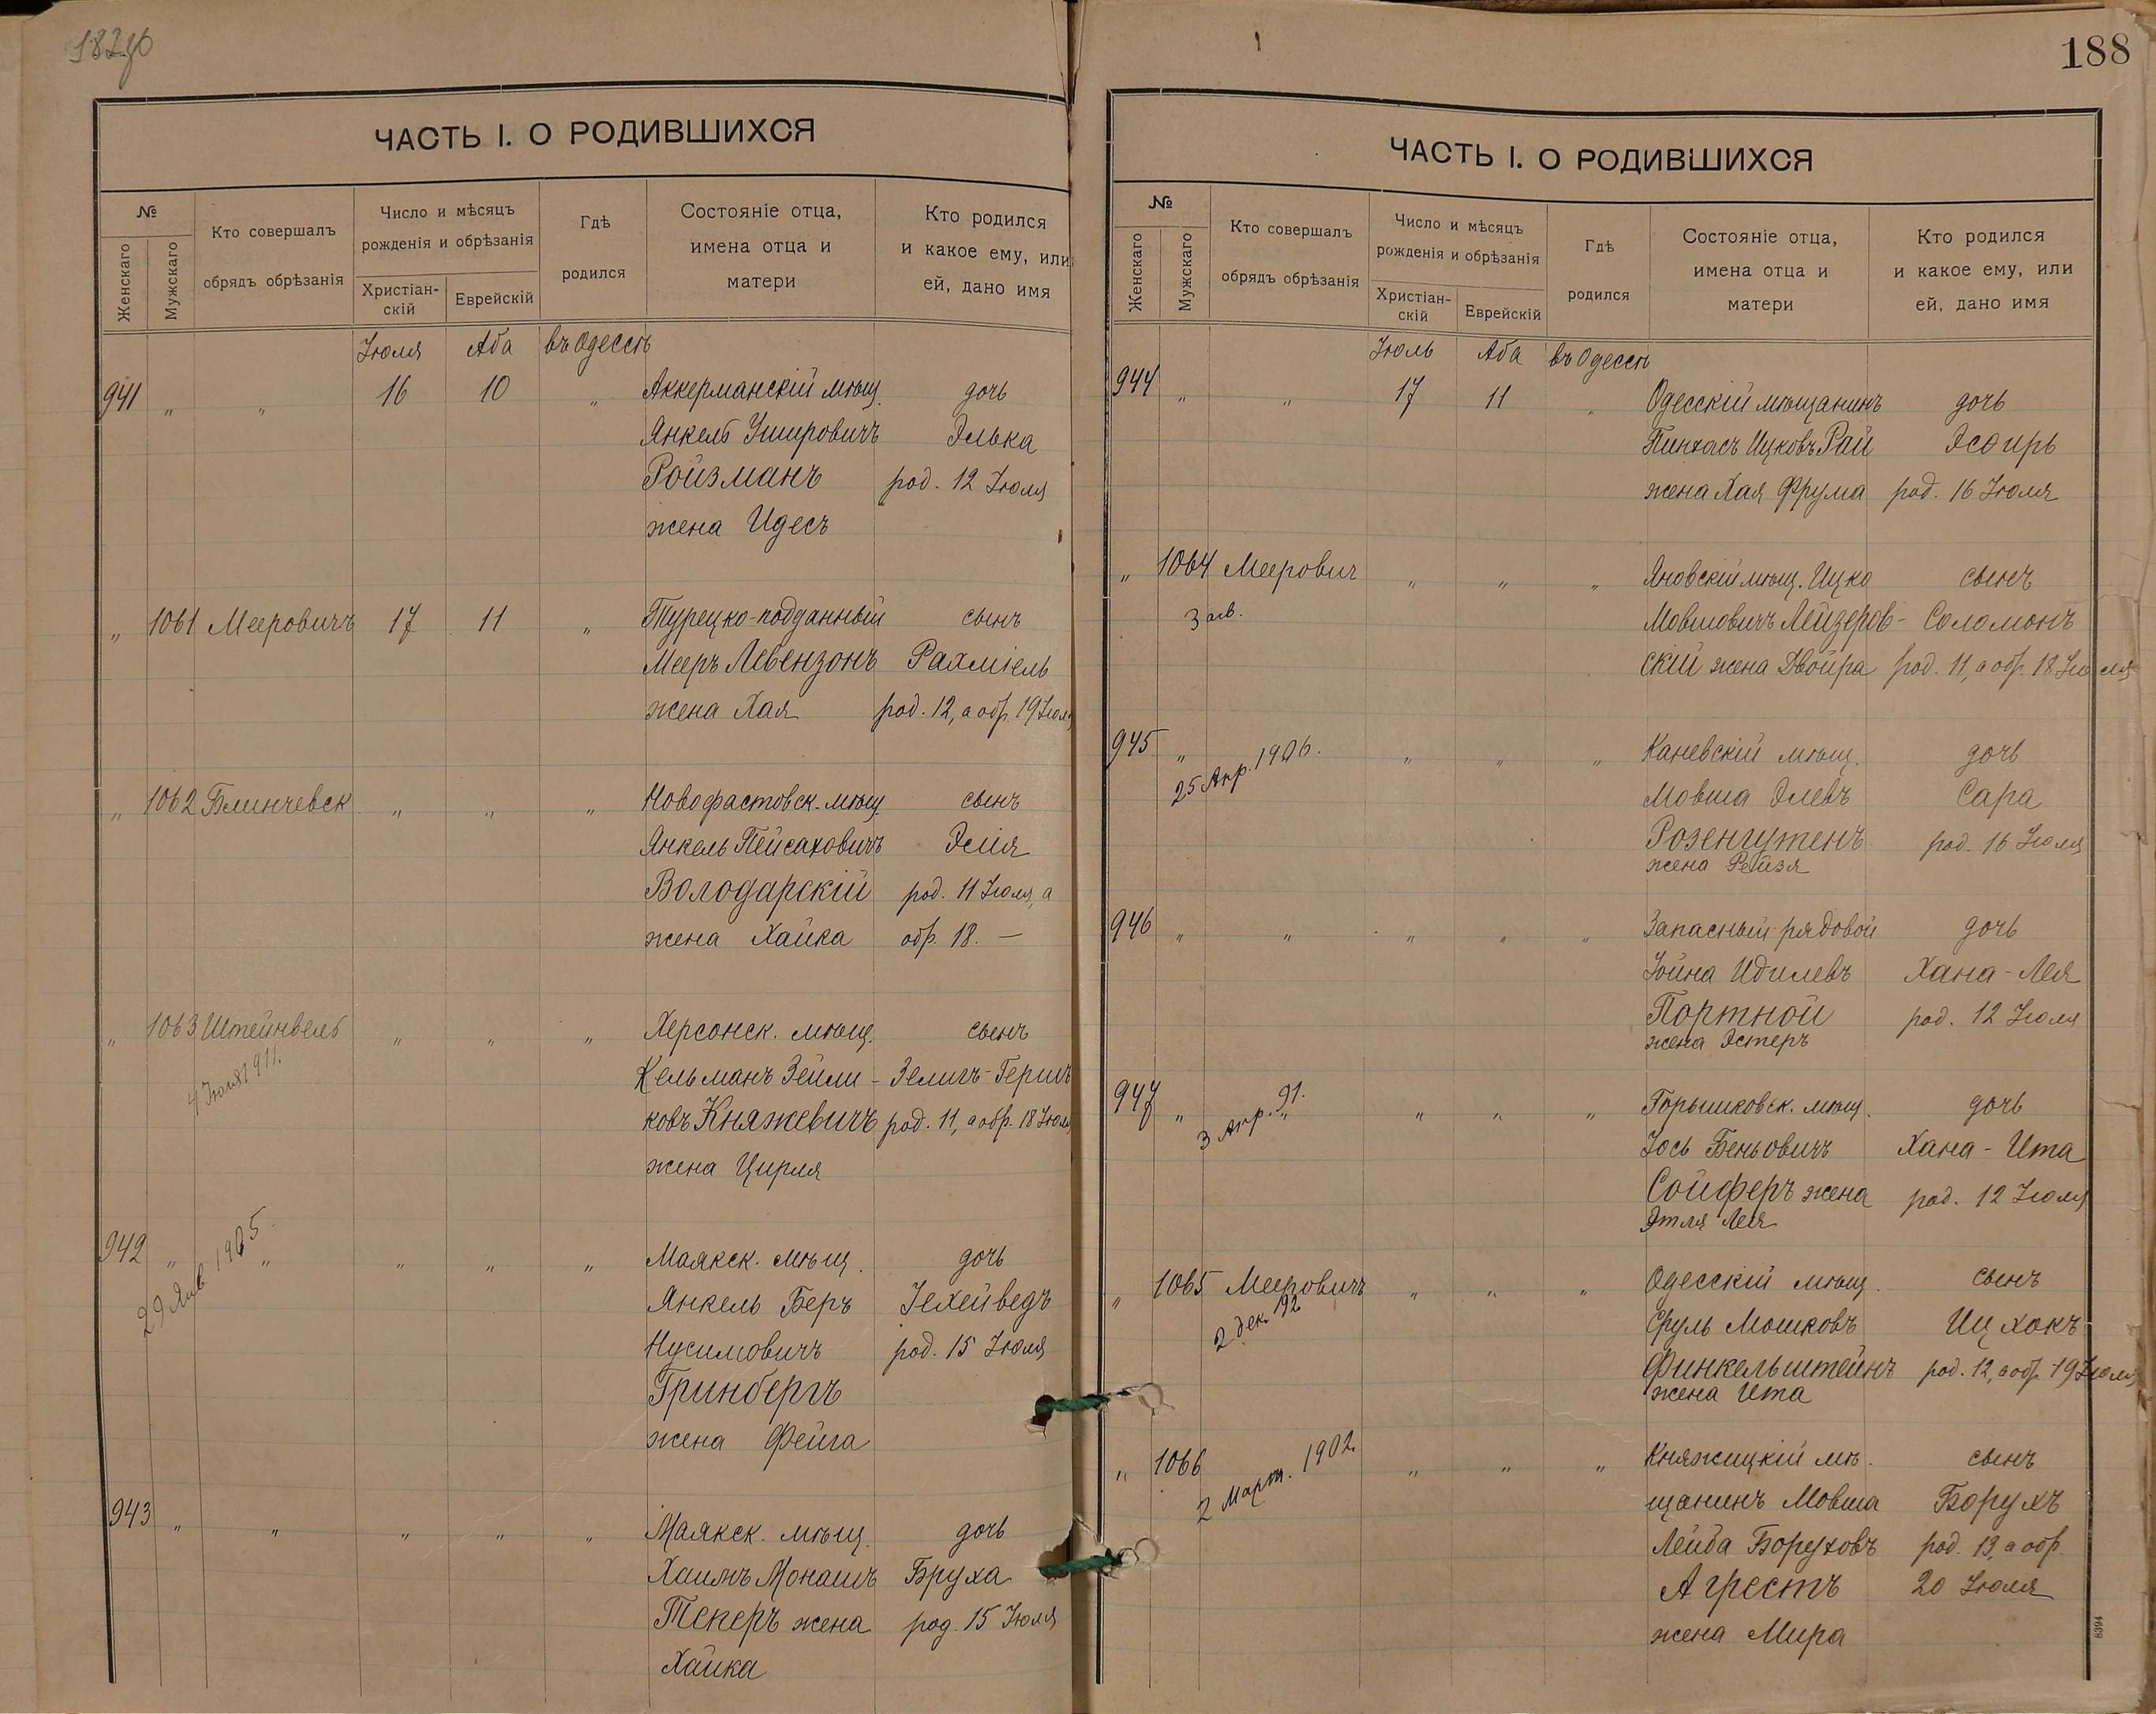 188
ЧАСТЬ I. О РОДИВШИХСЯ
№
Женскаго
Мужскаго
Кто совершалъ
обрядъ обрѣзанія
Число и мѣсяцъ
рожденія и обрѣзанія
Христіан-
скій
Еврейскій
Гдѣ
родился
Состояніе отца,
имена отца и
матери
Кто родился
и какое ему, или
ей, дано имя
Іюля Аба въ Одессѣ
941 " " 16 10 " Аккерманскій мѣщ. дочь
Янкель Умировичъ Элька
Ройзманъ род. 12 Іюля
жена Идесъ
" 1061 Мееровичъ 17 11 " Турецко-подданный сынъ
Мееръ Левензонъ Рахміель
жена Хая род. 12, а обр. 19 Іюля
" 1062 Блинчевск. " " " Новофастовск. мѣщ. сынъ
Янкель Пейсаховичъ Элія
Володарскій род. 11 Іюля, а
жена Хайка обр. 18. —
" 1063 Штейнвель " " " Херсонск. мѣщ. сынъ
4 Іюля 1911.
Кельманъ Зейли- Зелигъ-Гершъ
ковъ Княжевичъ род. 11, а обр. 18 Іюля
жена Цирля
942 " " " " " Маякск. мѣщ. дочь
29 Янв. 1905.
Янкель Беръ Іехейведъ
Нусимовичъ род. 15 Іюля
Гринбергъ
жена Фейга
943 " " " " " Маякск. мѣщ. дочь
Хаимъ Монашъ Бруха
Текеръ жена род. 15 Іюля
Хайка
ЧАСТЬ I. О РОДИВШИХСЯ
№
Женскаго
Мужскаго
Кто совершалъ
обрядъ обрѣзанія
Число и мѣсяцъ
рожденія и обрѣзанія
Христіан-
скій
Еврейскій
Гдѣ
родился
Состояніе отца,
имена отца и
матери
Кто родился
и какое ему, или
ей, дано имя
Іюль Аба въ Одессѣ
944 " " 17 11 " Одесскій мѣщанинъ дочь
Пинхасъ Ицковъ Рай Эсѳирь
жена Хая Фрума род. 16 Іюля
" 1064 Меерович " " " Яновскій мѣщ. Ицко сынъ
Мовшовичъ Лейзеров- Соломонъ
скій жена Двойра род. 11, а обр. 18 Іюля
945 " " " " Каневскій мѣщ. дочь
25 Апр. 1906.
Мовша Элевъ Сара
Розенгутенъ род. 16 Іюля
жена Рейзя
946 " " " " " Запасный рядовой дочь
Іойна Идилевъ Хана-Лея
Портной род. 12 Іюля
жена Эстеръ
947 " " " " " Горышковск. мѣщ. дочь
3 Апр. 91.
Іось Беньовичъ Хана-Ита
Сойферъ жена род. 12 Іюля
Этля Лея
" 1065 Мееровичъ " " " Одесскій мѣщ. сынъ
2 дек. 192
Сруль Мошковъ Ицхокъ
Финкельштейнъ род. 12, а обр. 19 Іюля
жена Ита
" 1066 " " " Княжицкій мѣ- сынъ
2 Март. 1902.
щанинъ Мовша Борухъ
Лейба Боруховъ род. 13, а обр.
Агрестъ 20 Іюля
жена Мира
8394